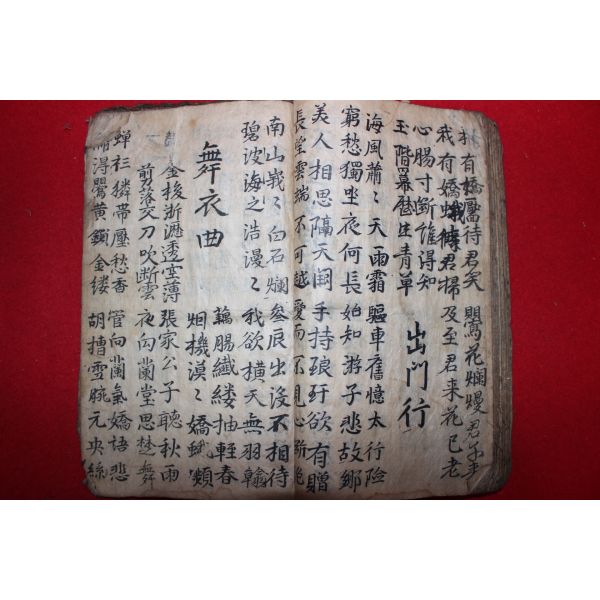 林有嬌靨待君笑 鸎花爛熳君不來
我有嬌蛾待君掃 及至君来花已老
心腸寸斷誰得知
玉階幕歷生青草
出門行
海風蕭ミ天雨霜 驅車舊憶太行險
窮愁獨坐夜何長 始知游子悲故鄉
美人相思隔天闕 手持琅玕欲有贈
長望雲端不可越 愛而不見心断絶
南山峩ミ白石爛 參辰出没不相待
碧波海之浩漫ミ 我欲橫天無羽翰
舞衣曲
藕腸纖縷抽輕春
烟機漠ミ嬌蛾嚬
金梭淅瀝透空薄 張家公子聽秋雨
剪落交刀吹断雲 夜向蘭堂思楚舞
蟬衫麟帶壓愁香 管向蘭氣嬌語悲
偷得鸎黄鎖金縷 胡槽雪腕元央絲